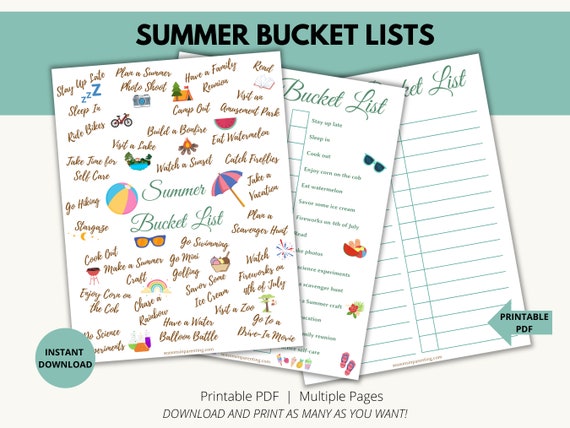 SUMMER BUCKET LISTS
Stay Up Late
Plan a Summer
Photo Shoot
Have a Family
Reunion
Read
Sleep In
Camp Out
Visit an
Amusement Park
Ride Bikes
Build a Bonfire
Eat Watermelon
Visit a Lake
Take Time for
Self Care
Watch a Sunset
Catch Fireflies
Take a
Vacation
Go Hiking
Summer
Bucket List
Stargaze
Plan a
Scavenger Hunt
Go Swimming
Cook Out
Make a Summer
Craft
Go Mini
Golfing
Watch
Fireworks on
4th of July
Savor Some
Ice Cream
Enjoy Corn on
the Cob
Chase a
Rainbow
Visit a Zoo
Go to a
Drive-In Movie
Do Science
Experiments
Have a Water
Balloon Battle
Bucket List
Stay up late
Sleep in
Cook out
Enjoy corn on the cob
Eat watermelon
Savor some ice cream
Fireworks on 4th of July
Read
photos
science experiments
a scavenger hunt
a Summer craft
vacation
family reunion
self care
Bucket List
PRINTABLE
PDF
INSTANT
DOWNLOAD
Printable PDF | Multiple Pages
DOWNLOAD AND PRINT AS MANY AS YOU WANT!